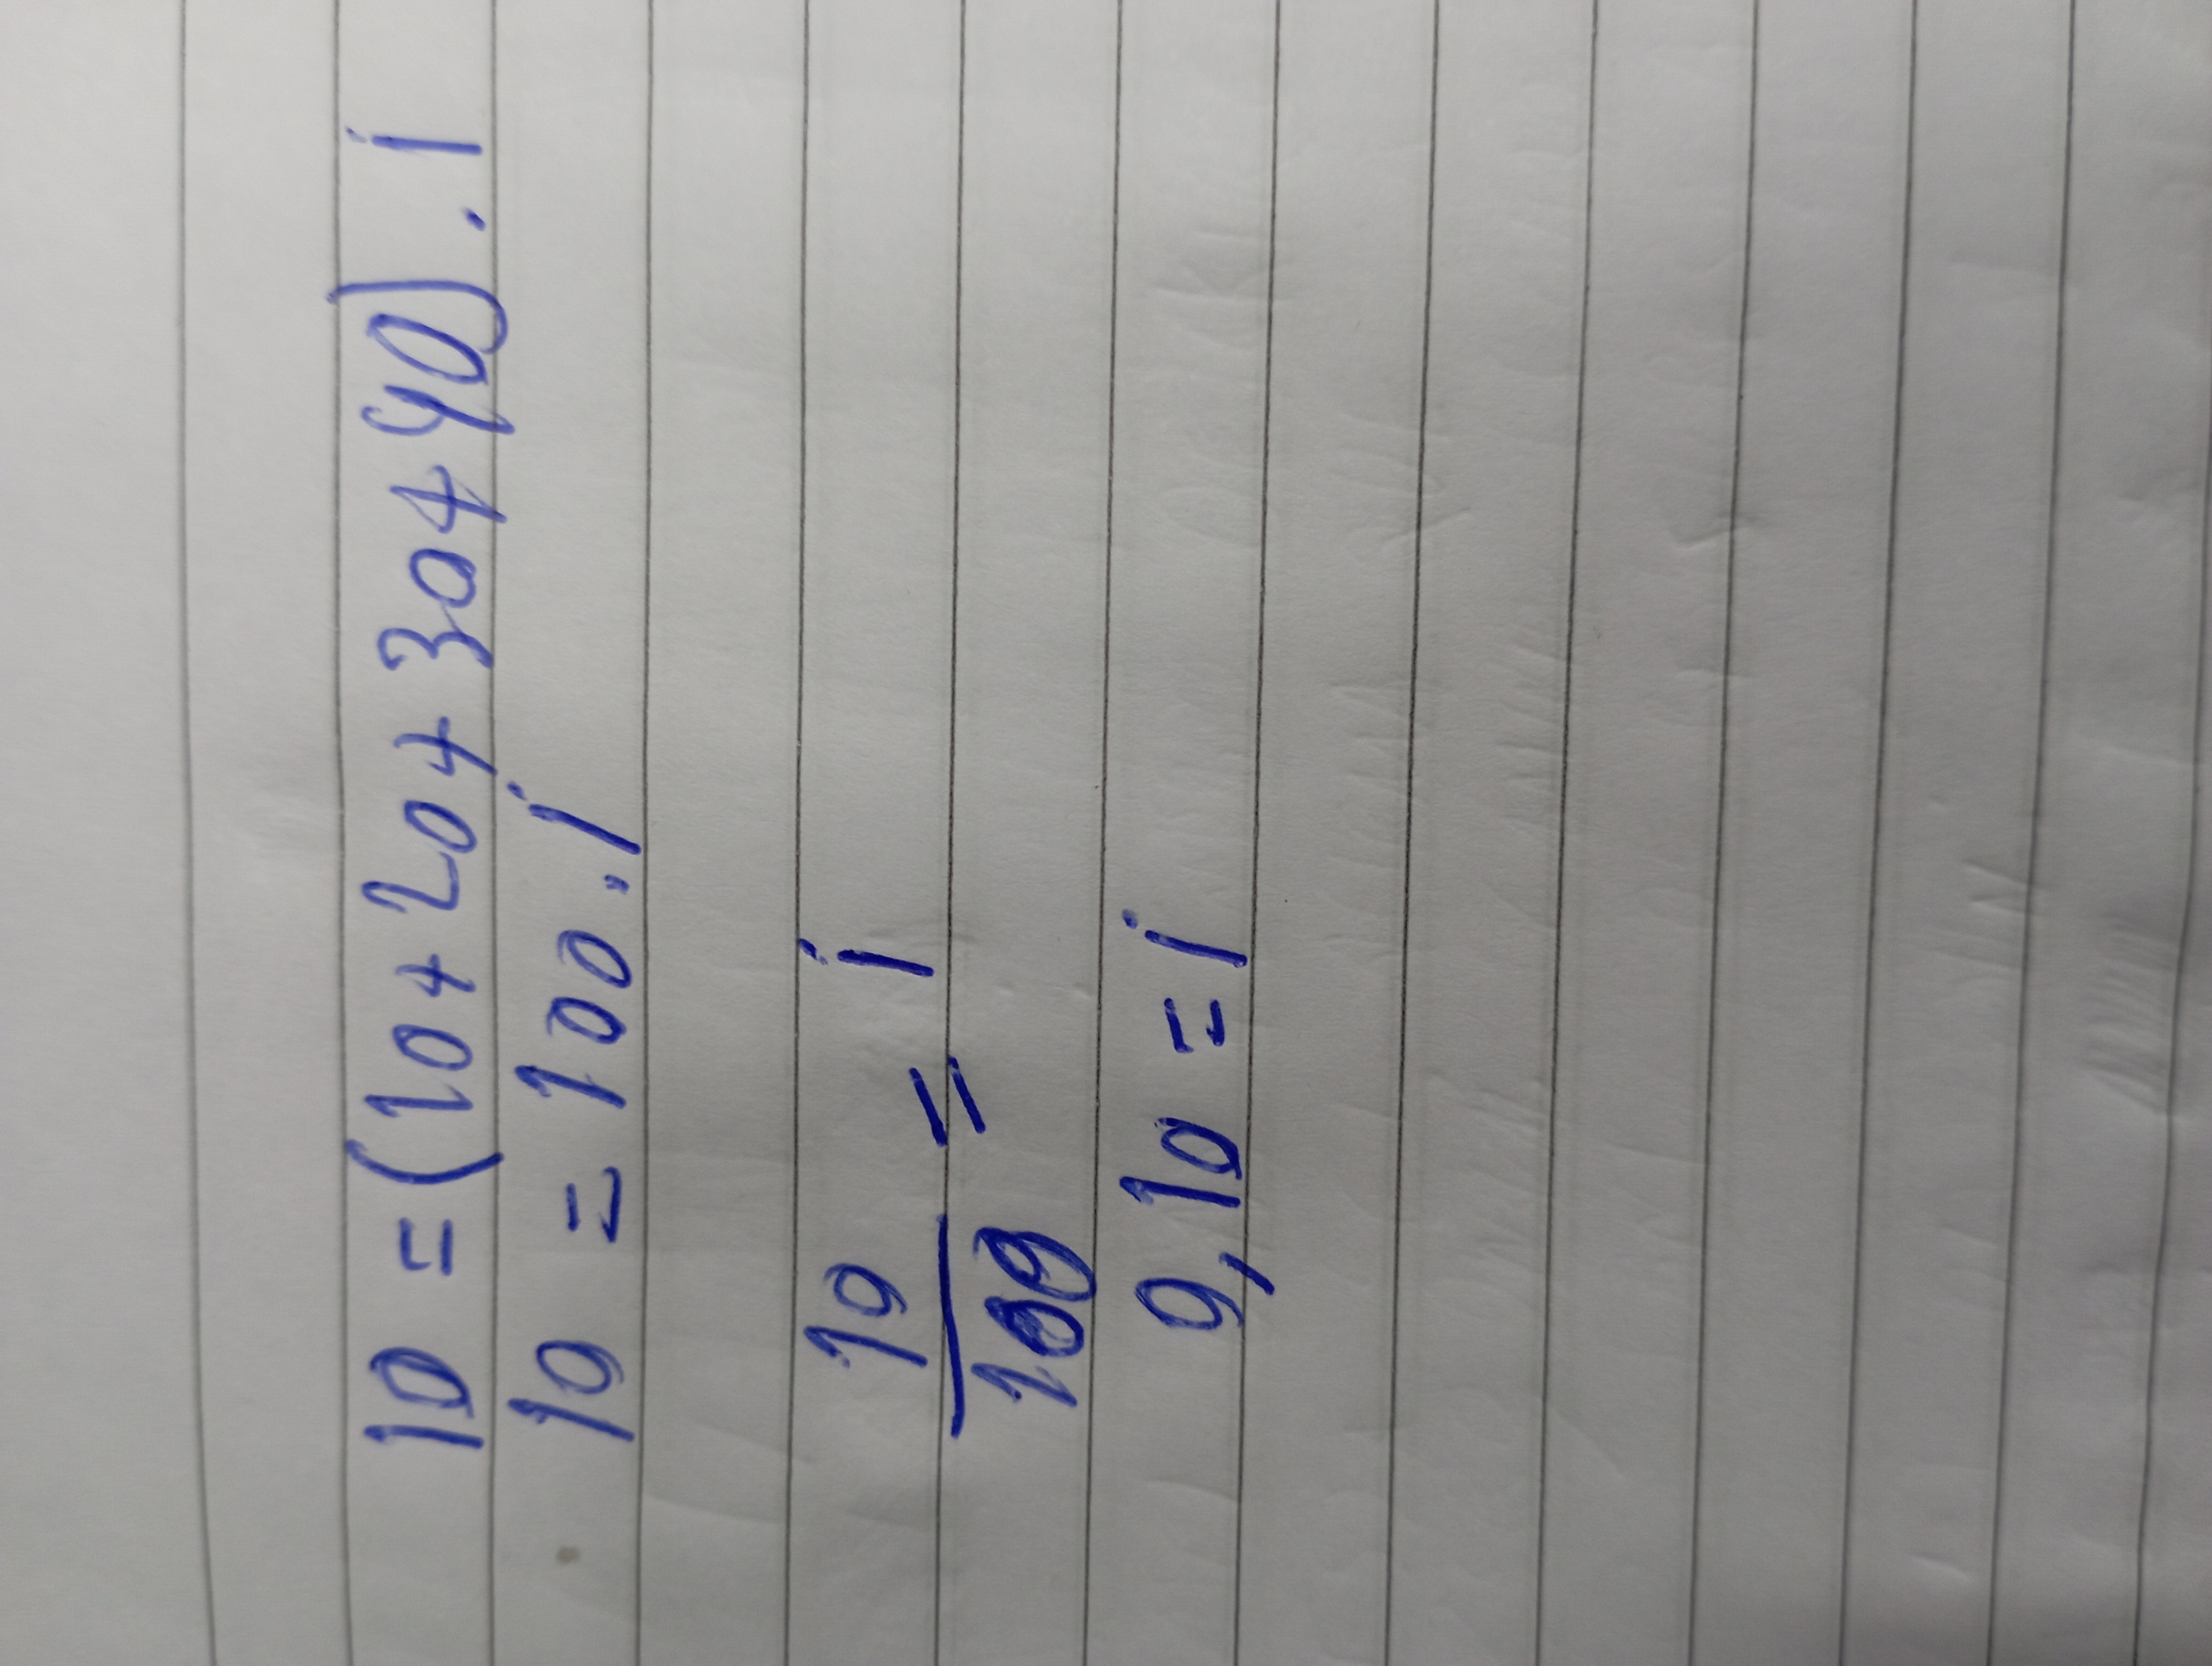 10 = (10+20+30+40).i
10 = 100.i
10/100 = i
0,10 = i